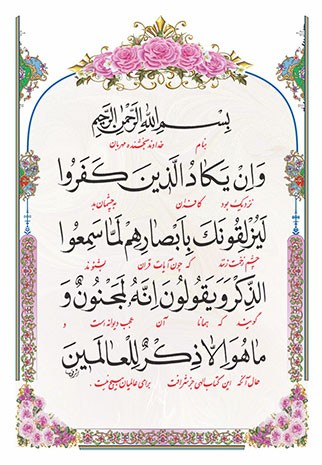 بسم الله الرحمن الرحیم
بنام خداوند بخشنده مهربان
وَاِنْ یَکادُ الَّذینَ کَفَرُوا
نزدیک بود کافران به چشمان بد
لَیُزْلِقُونَكَ بِاَبصارِهِم لَمّا سَمِعُوا
چشم زخمت زنند که چون آیات قرآن بشنوند
الذِّکْرَ وَیَقُولُونَ اِنَّهُ لَمَجْنُونٌ وَ
گویند که همانا آن عجب دیوانه است و
ما هُوَ اِلاّ ذِکْرٌ لِلْعالَمینَ
حال آنکه این کتاب الهی جز شرافت برای عالمیان هیچ نیست .